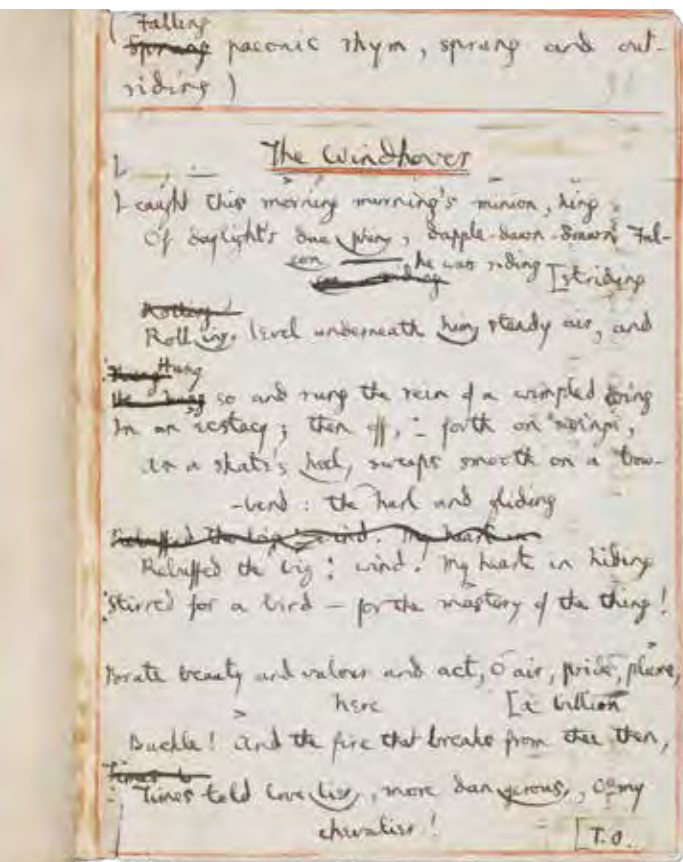 ( Falling
Sprung paeonic rhym, sprung and out-
riding )
The Windhover
I
I caught this morning morning's minion, king
Of daylight's dauphin, dapple-dawn-drawn Fal-
con he was riding [striding
Rolling
Rolling level underneath him steady air, and
Hung
He hung so and rung the rein of a wimpled wing
In an ecstacy; then off, : forth on swing,
As a skate's heel, sweeps smooth on a bow-
-bend : the hurl and gliding
Rebuffed the big : wind. My heart in
Rebuffed the big : wind. My heart in hiding
Stirred for a bird — for the mastery of the thing!
Brute beauty and valour and act, O air, pride, plume,
here [a billion
Buckle! And the fire that breaks from thee then,
Times to
: Times told lovelier, more dangerous, O my
chevalier! [T.O.